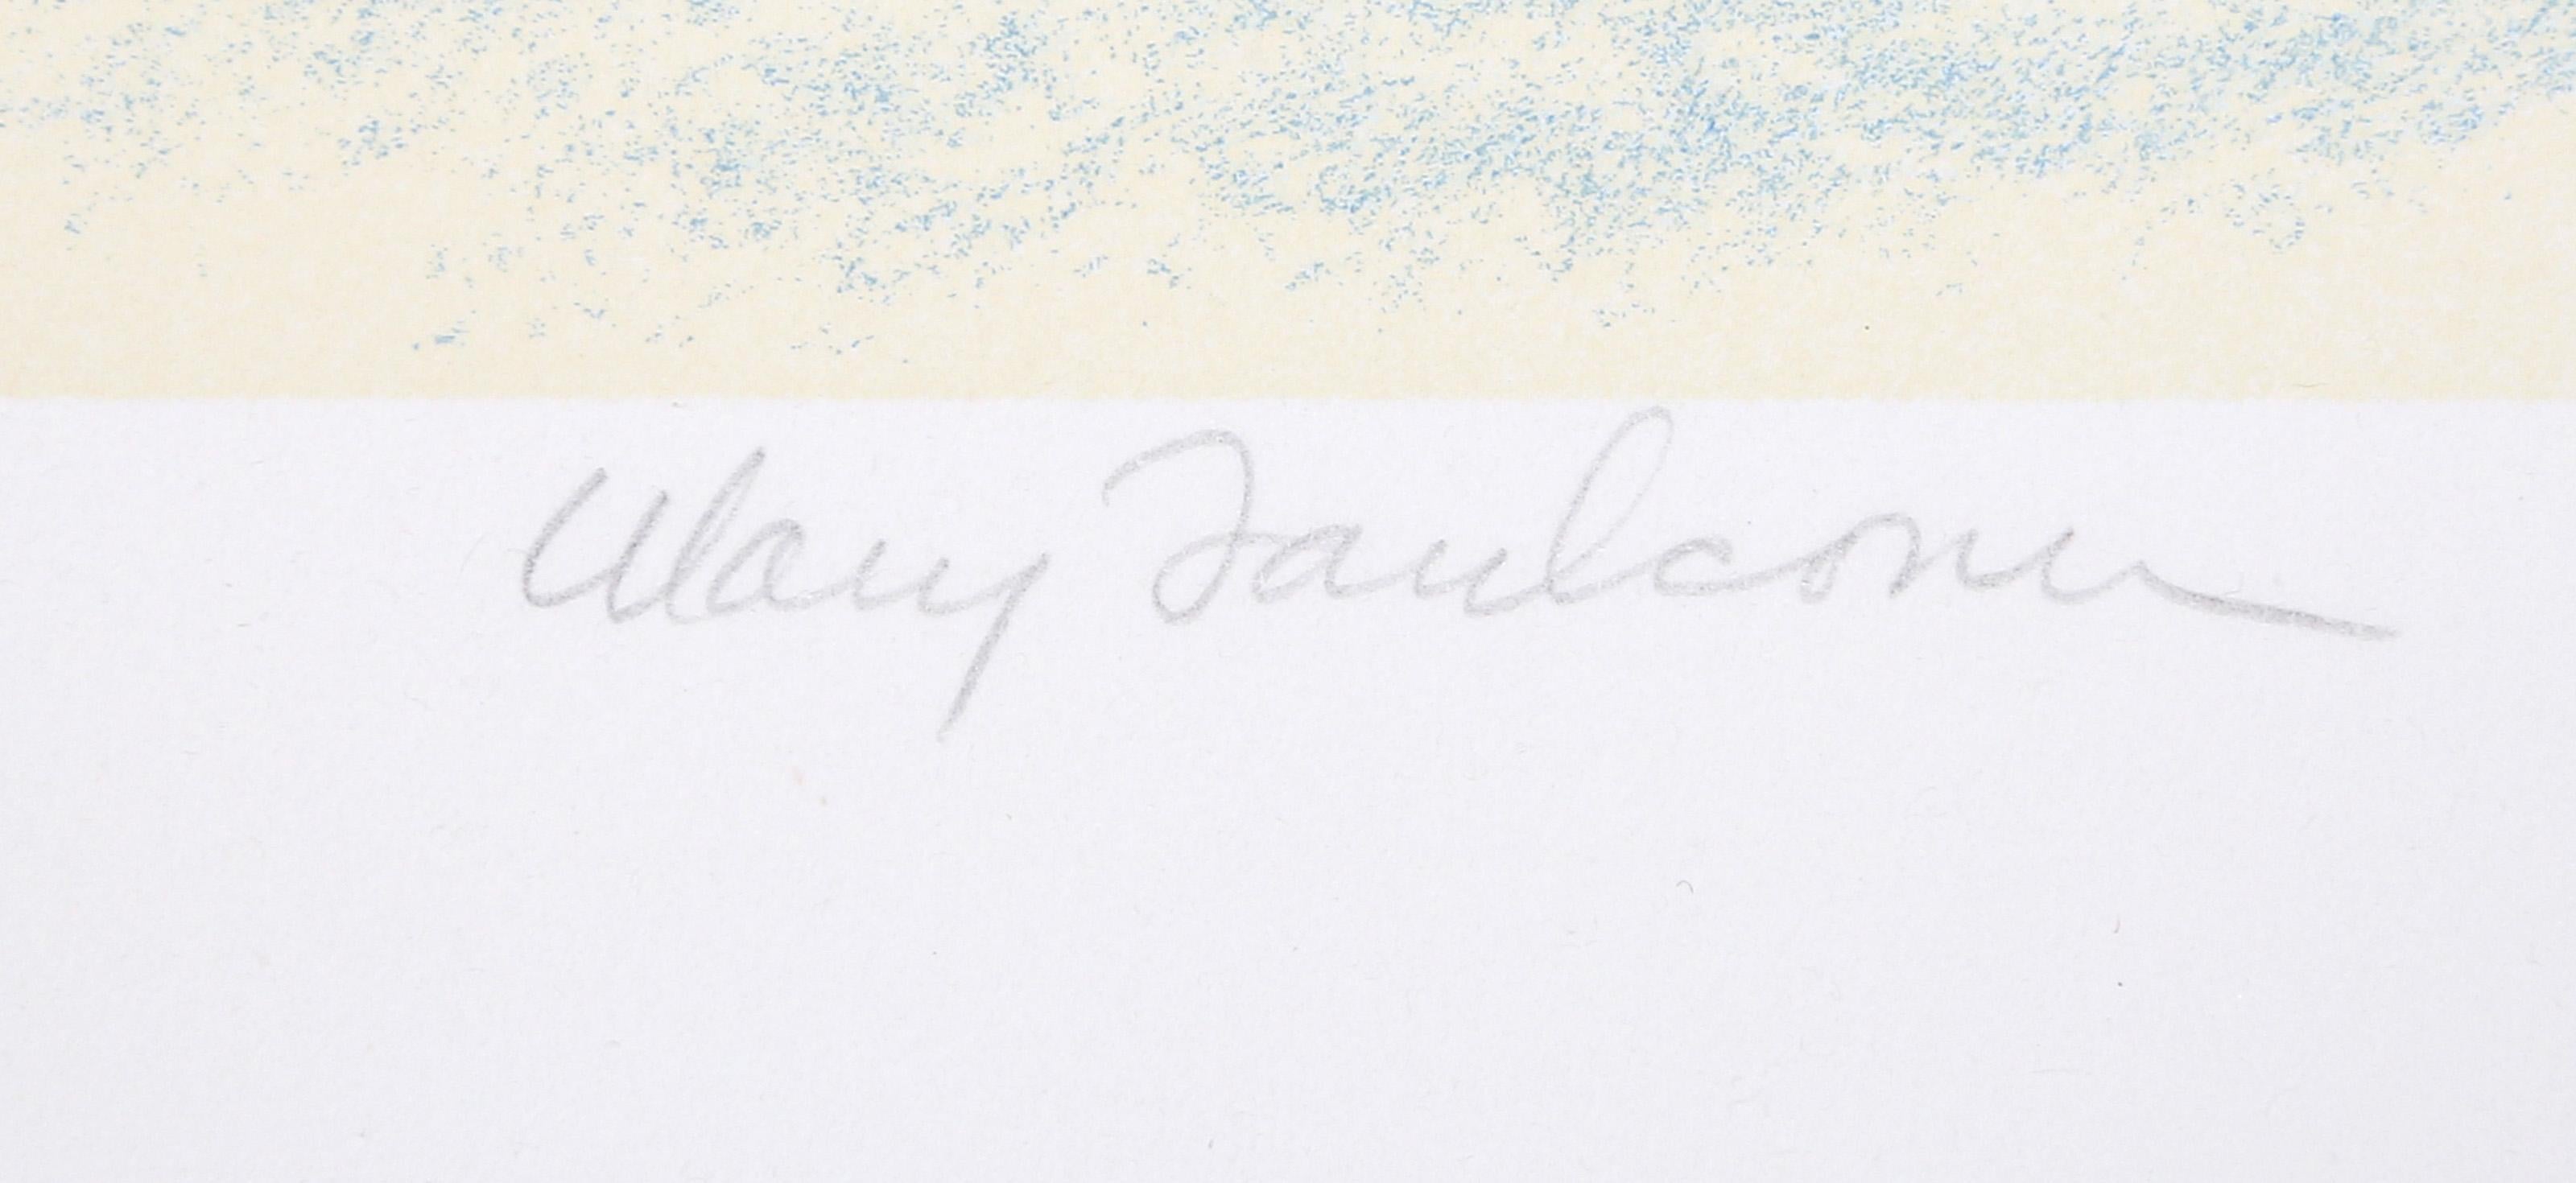 Mary Faulconer